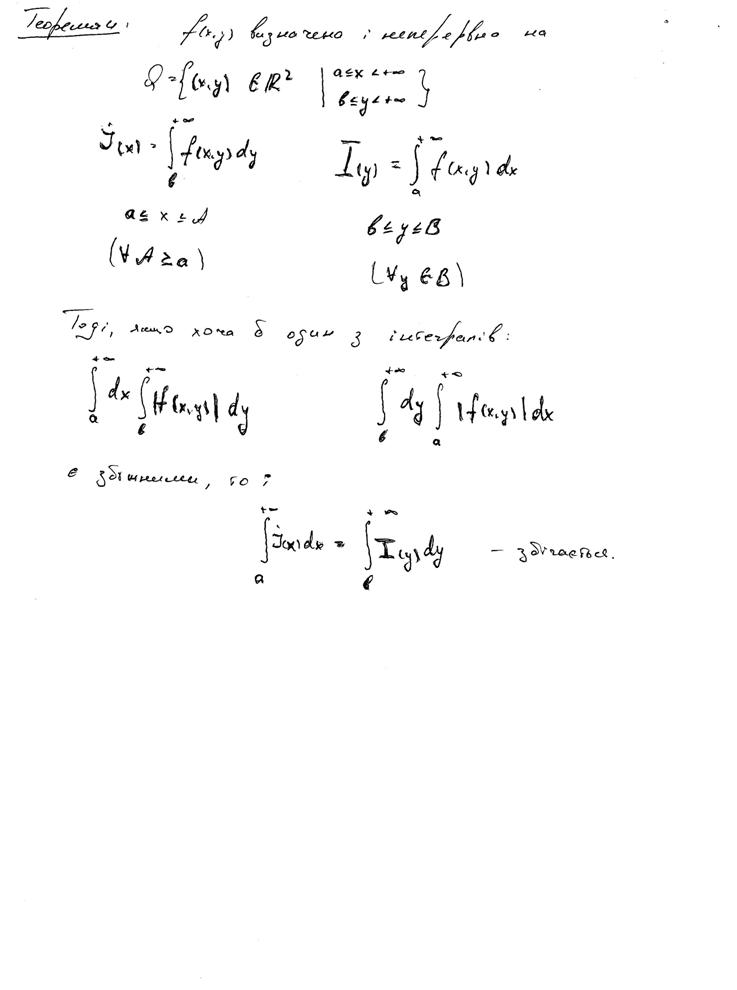 Теорема 4: f(x,y) визначено і неперервно на
Q = {(x,y) ∈ ℝ² | a ≤ x < +∞
b ≤ y < +∞}
J(x) = ∫_b^{+∞} f(x,y) dy I(y) = ∫_a^{+∞} f(x,y) dx
a ≤ x ≤ A b ≤ y ≤ B
(∀ A ≥ a) (∀ y ∈ B)
Тоді, якщо хоча б один з інтегралів:
∫_a^{+∞} dx ∫_b^{+∞} |f(x,y)| dy ∫_b^{+∞} dy ∫_a^{+∞} |f(x,y)| dx
є збіжними, то:
∫_a^{+∞} J(x) dx = ∫_b^{+∞} I(y) dy – збігається.